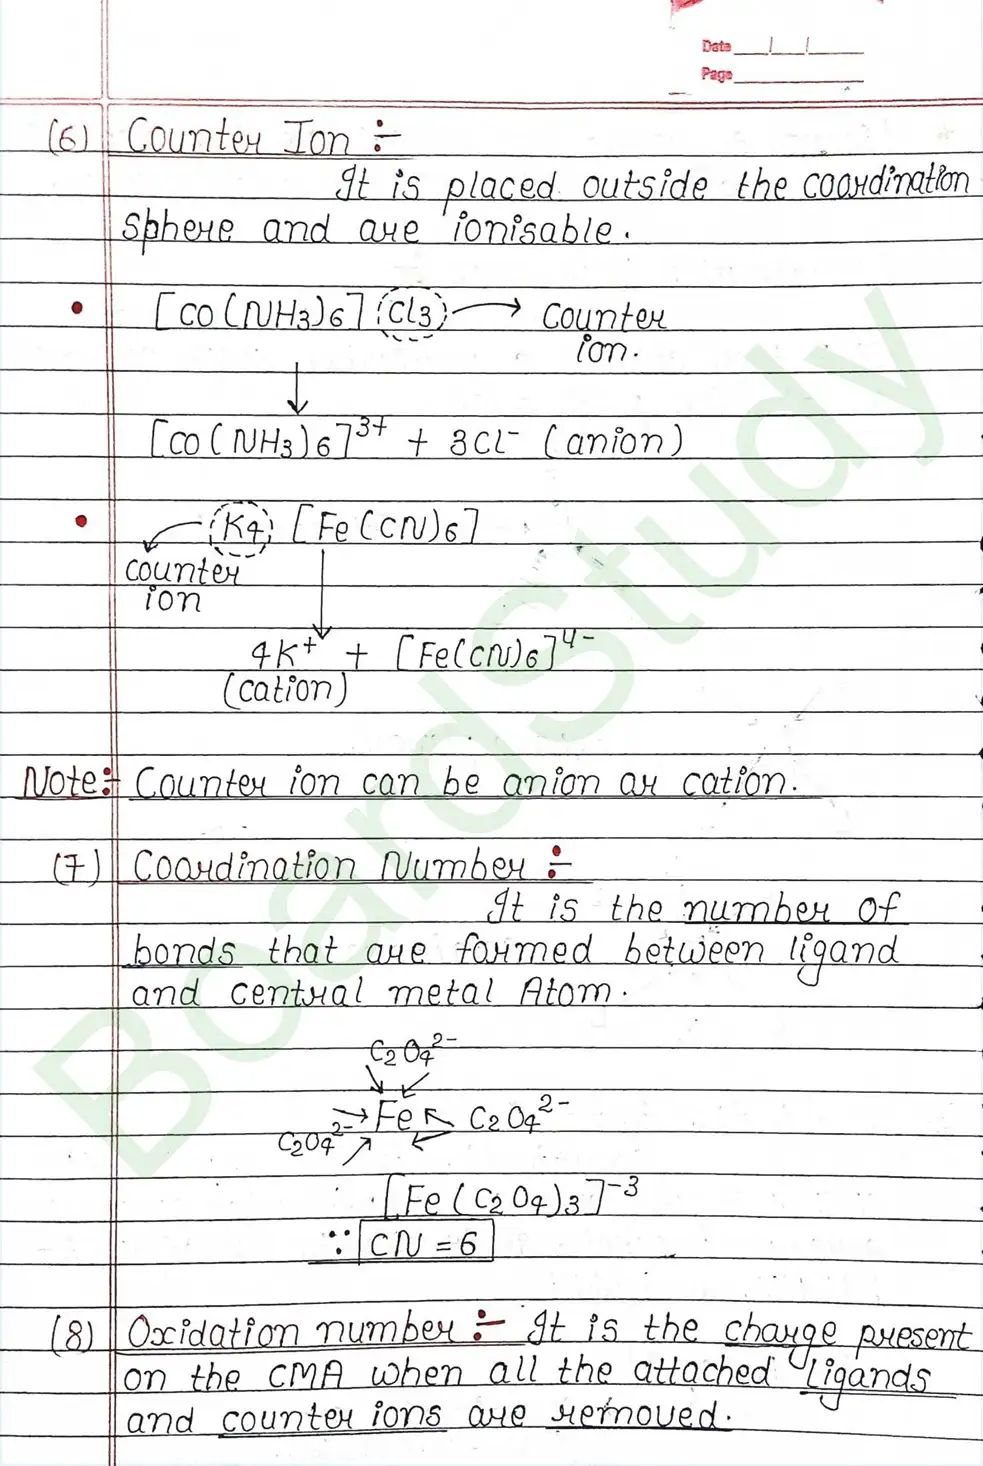 Date / /
Page
(6) Counter Ion :-
It is placed outside the coordination
sphere and are ionisable.
• [CO(NH3)6] Cl3 → Counter
ion.
↓
[CO(NH3)6]³⁺ + 3Cl⁻ (anion)
• K4 [Fe(CN)6]
counter
ion
4K⁺ + [Fe(CN)6]⁴⁻
(cation)
Note:- Counter ion can be anion or cation.
(7) Coordination Number :-
It is the number of
bonds that are formed between ligand
and central metal Atom.
C2O4²⁻
→ Fe ← C2O4²⁻
C2O4²⁻
[Fe(C2O4)3]⁻³
∵ CN = 6
(8) Oxidation number :- It is the charge present
on the CMA when all the attached Ligands
and counter ions are removed.
BoardStudy